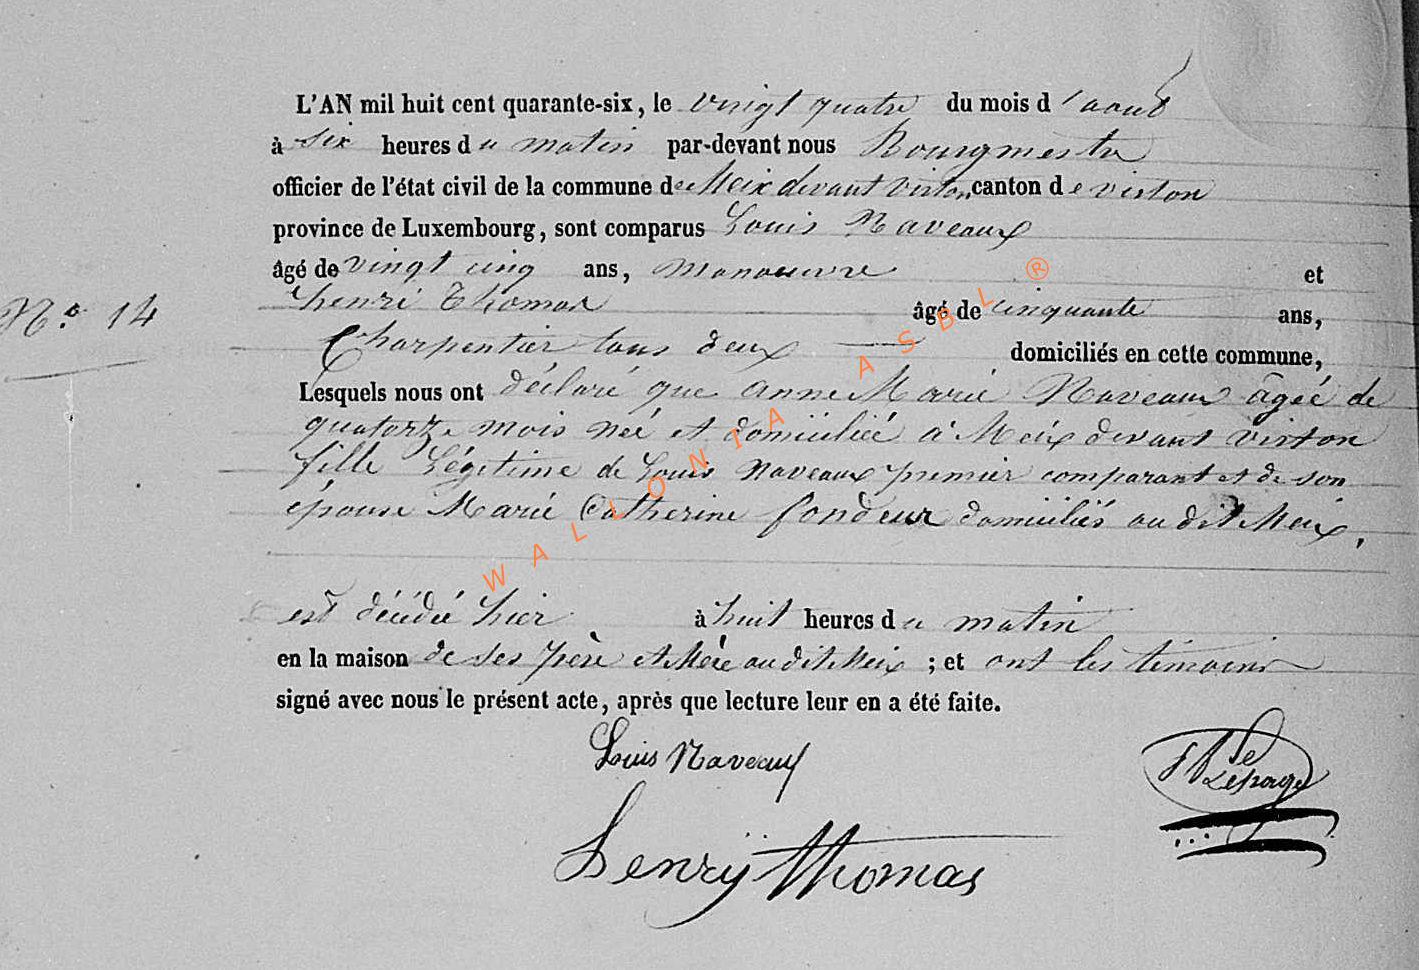 L'AN mil huit cent quarante-six, le vingt quatre du mois d'aout
à six heures du matin par-devant nous Bourgmestre
officier de l'état civil de la commune de Meix devant virton, canton de virton
province de Luxembourg, sont comparus Louis Naveaux
âgé de vingt cinq ans, manoeuvre et
N.° 14
henri Thomas âgé de cinquante ans,
Charpentier tous deux domiciliés en cette commune,
Lesquels nous ont déclaré que anne Marie Naveaux âgée de
quatorze mois née et domiciliée à Meix devant virton
fille légitime de Louis Naveaux premier comparant et de son
épouse Marie Catherine fondeur domiciliés au dit Meix,
est décédée hier à huit heures du matin
en la maison de ses père et Mère au dit Meix ; et ont les témoins
signé avec nous le présent acte, après que lecture leur en a été faite.
Louis Naveaux
Lepage
henrÿ thomas
WALLONIA ASBL ®